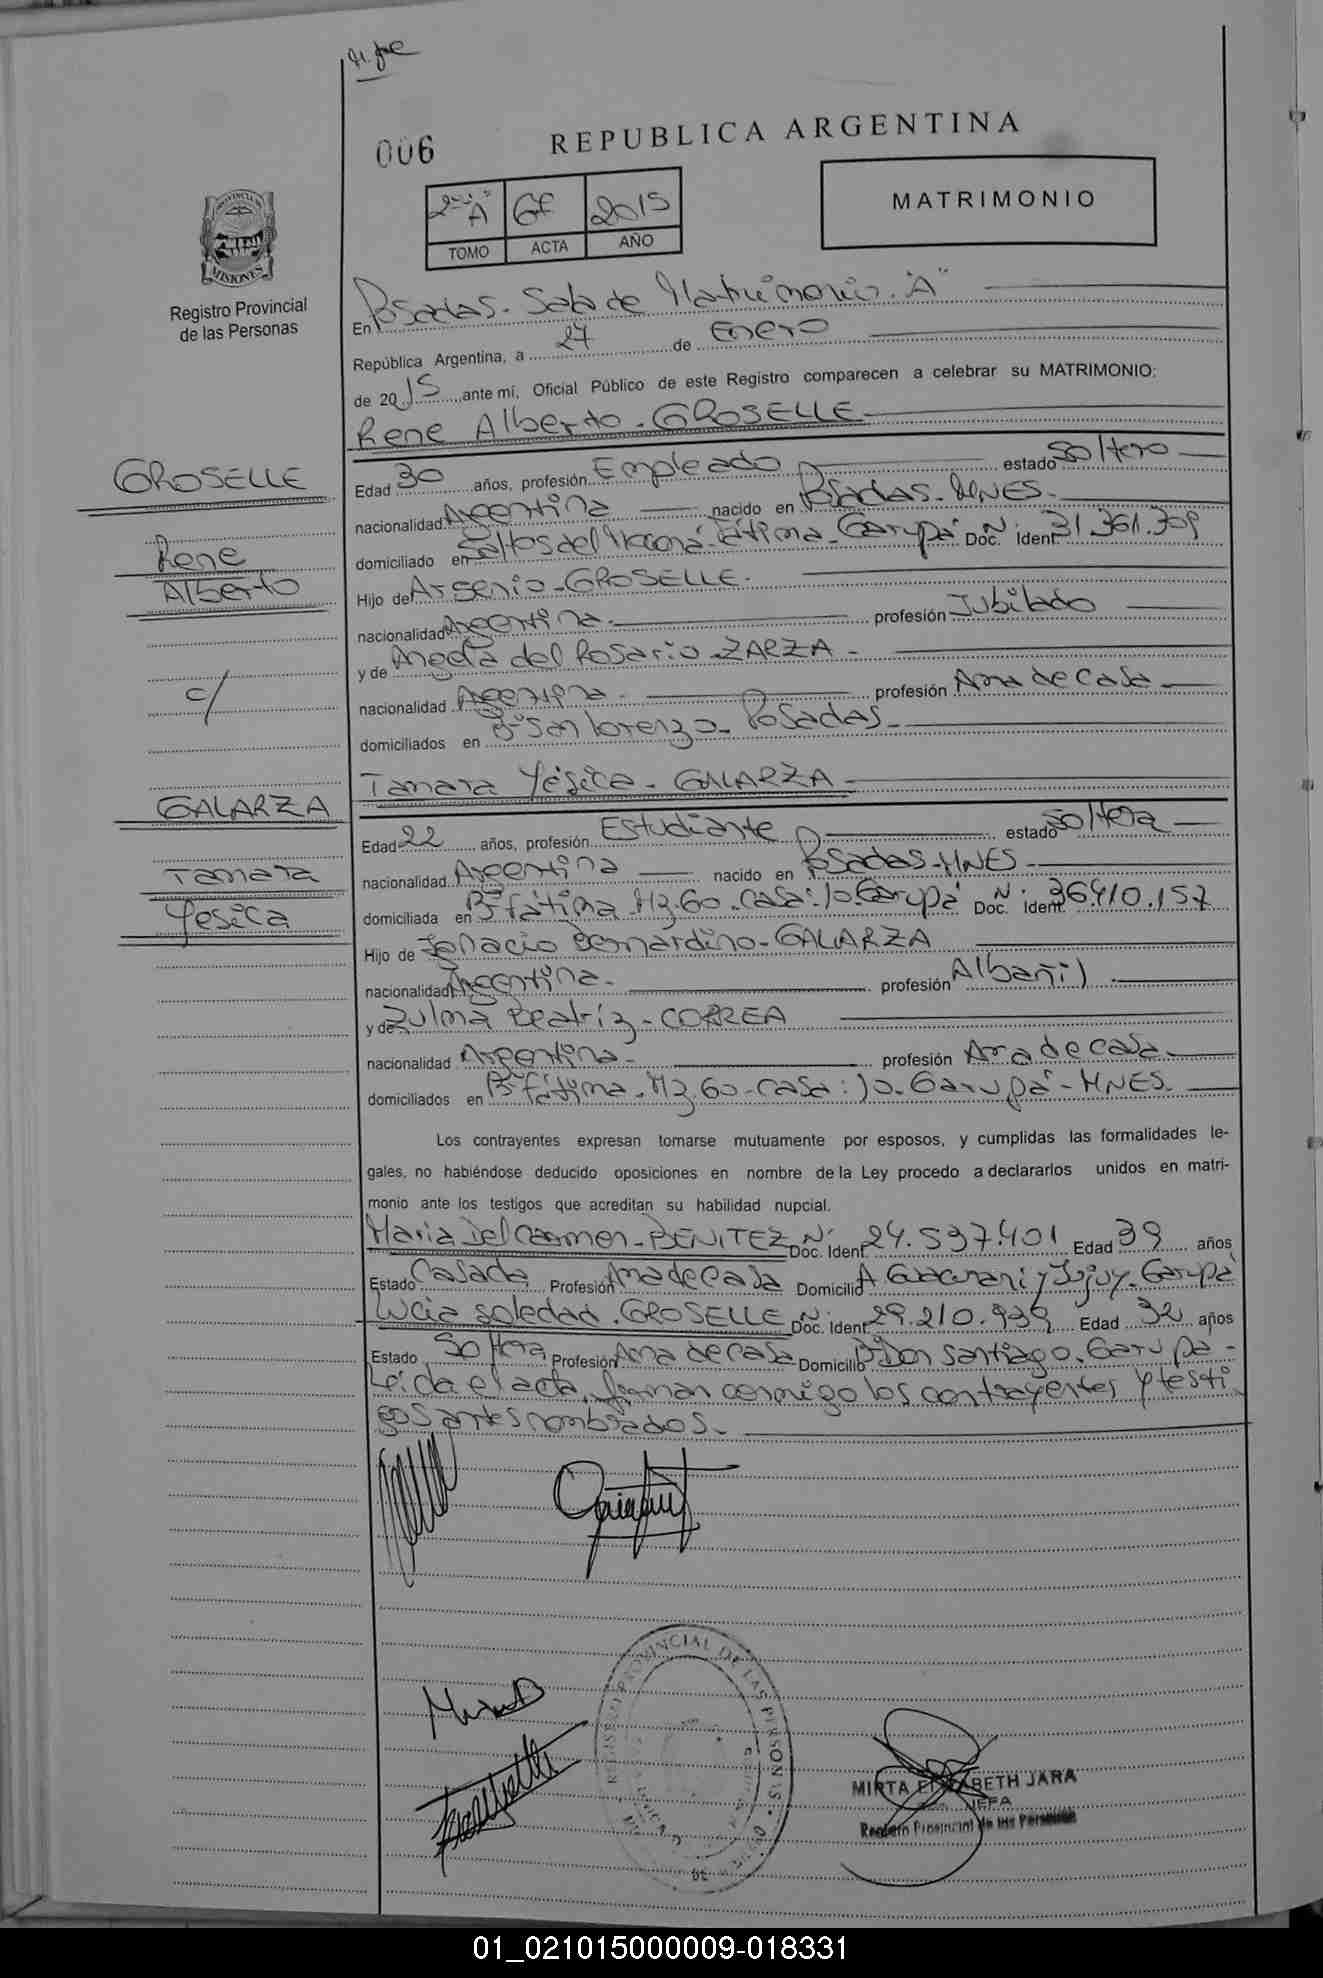 006
REPUBLICA ARGENTINA
MATRIMONIO
2015
TOMO ACTA AÑO
PROVINCIA DE
MISIONES
Registro Provincial
de las Personas
En Posadas. Sala de Matrimonio. "A"
República Argentina, a 27 de Enero
de 2015 ante mí, Oficial Público de este Registro comparecen a celebrar su MATRIMONIO:
Rene Alberto. GROSELLE
GROSELLE
Rene
Alberto
c/
GALARZA
Tamara
Yesica
Edad 30 años, profesión Empleado estado Soltero
nacionalidad Argentina nacido en Posadas. MNES.
domiciliado en Fátima. Garupá Doc. Ident. N° 31.361.309
Hijo de Arsenio. GROSELLE.
nacionalidad Argentina. profesión Jubilado
y de del Rosario. ZARZA.
nacionalidad Argentina. profesión Ama de Casa
domiciliados en B° San Lorenzo. Posadas.
Tamara Yésica. GALARZA
Edad 22 años, profesión Estudiante estado Soltera
nacionalidad Argentina nacido en Posadas. MNES.
domiciliada en B° Fátima. Mz. 60. Casa: 10. Garupá Doc. Ident. N° 36.410.157
Hijo de Ignacio Bernardino. GALARZA
nacionalidad Argentina. profesión Albañil
y de Zulma Beatríz. CORREA
nacionalidad Argentina. profesión Ama de casa
domiciliados en B° Fátima. Mz. 60. Casa: 10. Garupá. MNES.
Los contrayentes expresan tomarse mutuamente por esposos, y cumplidas las formalidades le-
gales, no habiéndose deducido oposiciones en nombre de la Ley procedo a declararlos unidos en matri-
monio ante los testigos que acreditan su habilidad nupcial.
Maria Del Carmen. BENITEZ Doc. Ident. N° 24.537.401 Edad 39 años
Estado Casada Profesión Ama de Casa Domicilio A. Guacurari y Jujuy. Garupá
Lucia Soledad. GROSELLE Doc. Ident. N° 29.210.939 Edad 32 años
Estado Soltera Profesión Ama de Casa Domicilio B° Don Santiago. Garupá.
Leída el acta, firman conmigo los contrayentes y testi
gos antes nombrados.
REGISTRO PROVINCIAL DE LAS PERSONAS
MIRTA ELIZABETH JARA
JEFA
Registro Provincial de las Personas
01_021015000009-018331